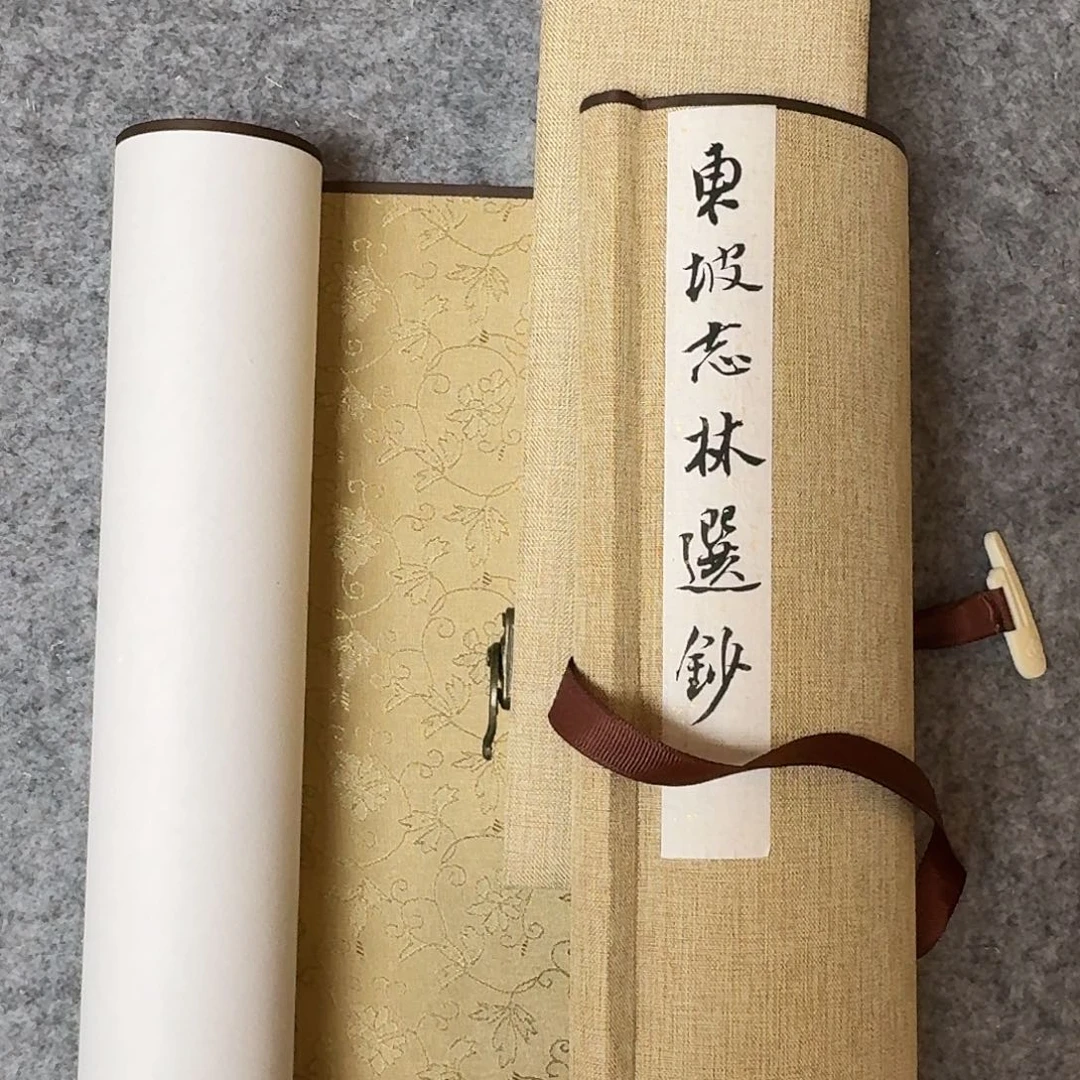 東坡志林選鈔